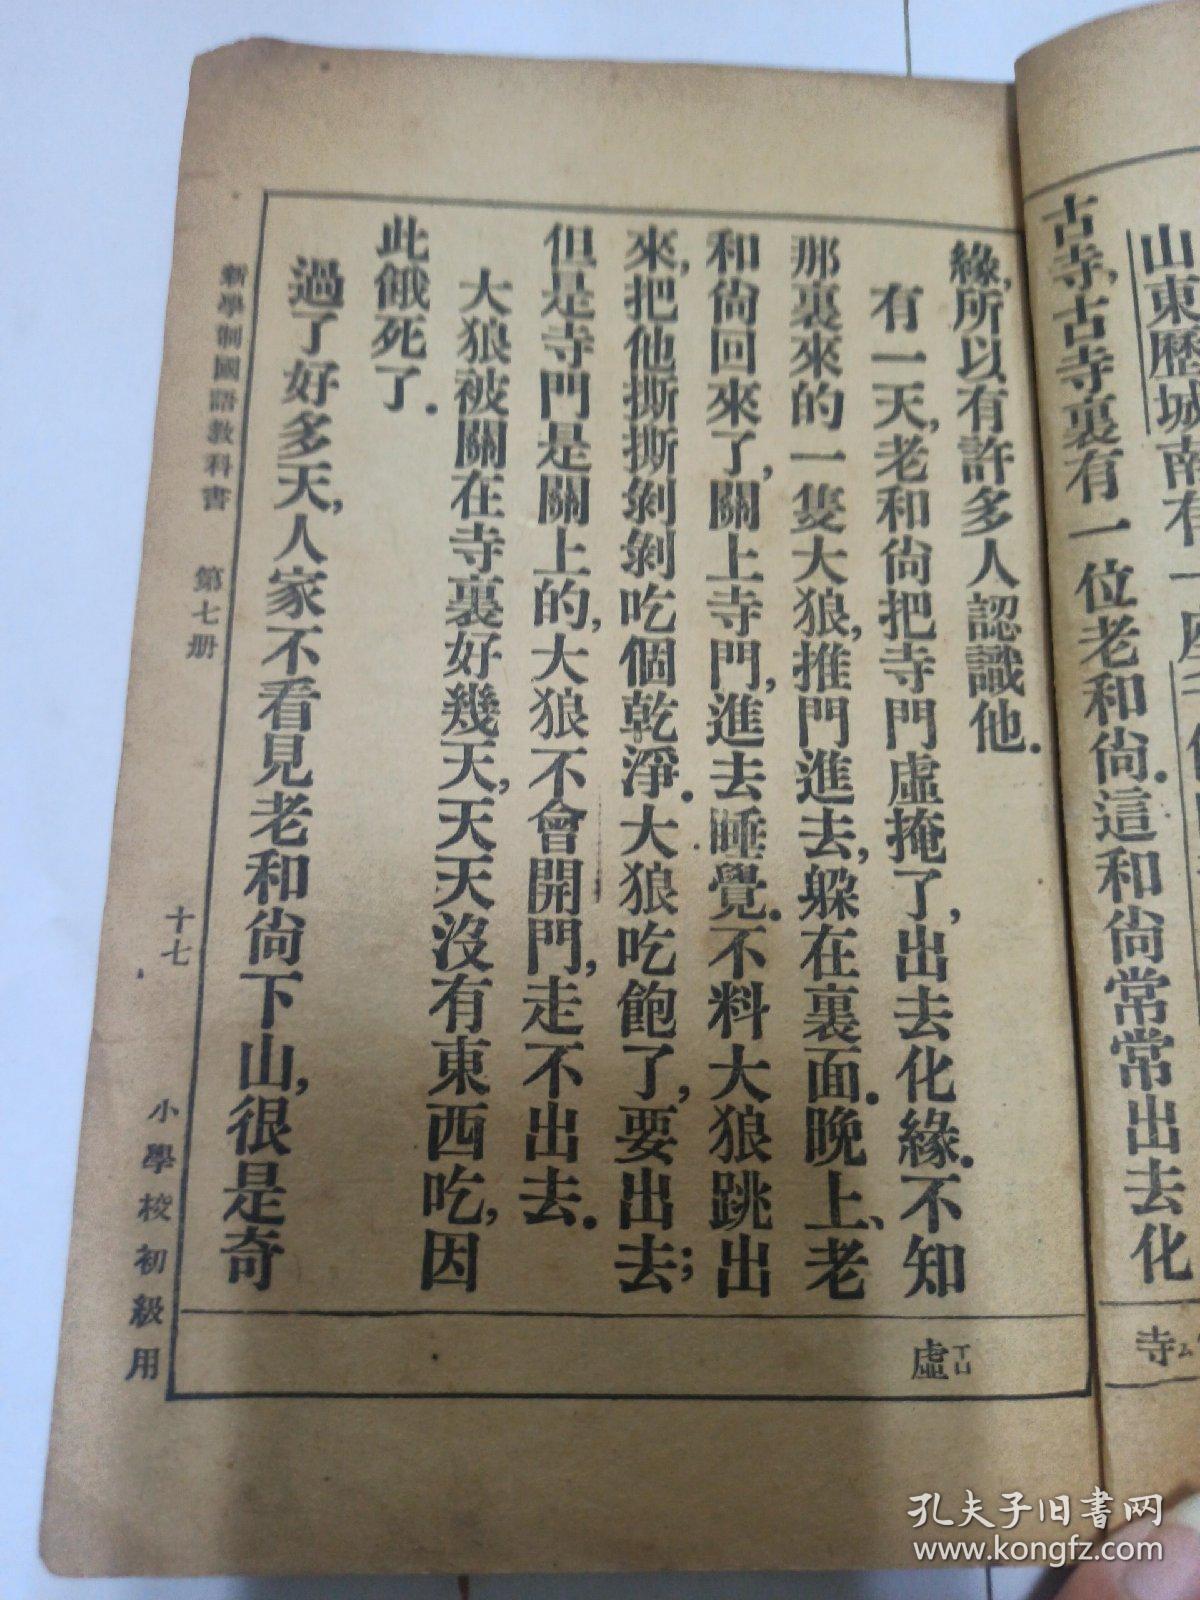 山東歷城南有一座
古寺,古寺裏有一位老和尙.這和尙常常出去化
寺
緣,所以有許多人認識他.
有一天,老和尙把寺門虛掩了,出去化緣.不知
那裏來的一隻大狼,推門進去,躲在裏面.晚上、老
和尙回來了,關上寺門,進去睡覺.不料大狼跳出
來,把他撕撕剝剝吃個乾淨.大狼吃飽了,要出去;
但是寺門是關上的,大狼不會開門,走不出去.
大狼被關在寺裏好幾天,天天沒有東西吃,因
此餓死了.
過了好多天,人家不看見老和尙下山,很是奇
虛ㄒㄩ
新學制國語教科書 第七册 十七 小學校初級用
孔夫子旧书网
www.kongfz.com